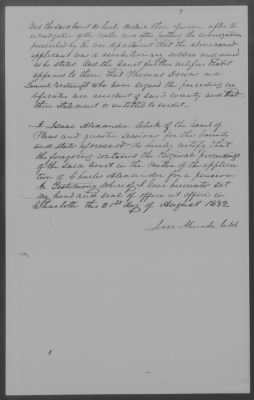 And the said Court do hereby declare their opinion after the
investigation of the matter and after putting the interrogatories
prescribed by the war department that the above named
applicant was a revolutionary soldier and served
as he states. And the Court further certifies that it
appears to them that Thomas Downs and
Samuel who have signed the preceding cer
tificates are resident of said County and that
their statement is entitled to credit.
I Isaac Alexander Clerk of the Court of
Pleas and quarter sessions for the County
and State aforesaid do hereby certify that
the foregoing contains the original proceedings
of the said Court in the matter of the applica
tion of Charles Alexander for a pension
In Testimony whereof I have hereunto set
my hand and seal of office at office in
Charlotte this 31st day of August 1832
Isaac Alexander Clk